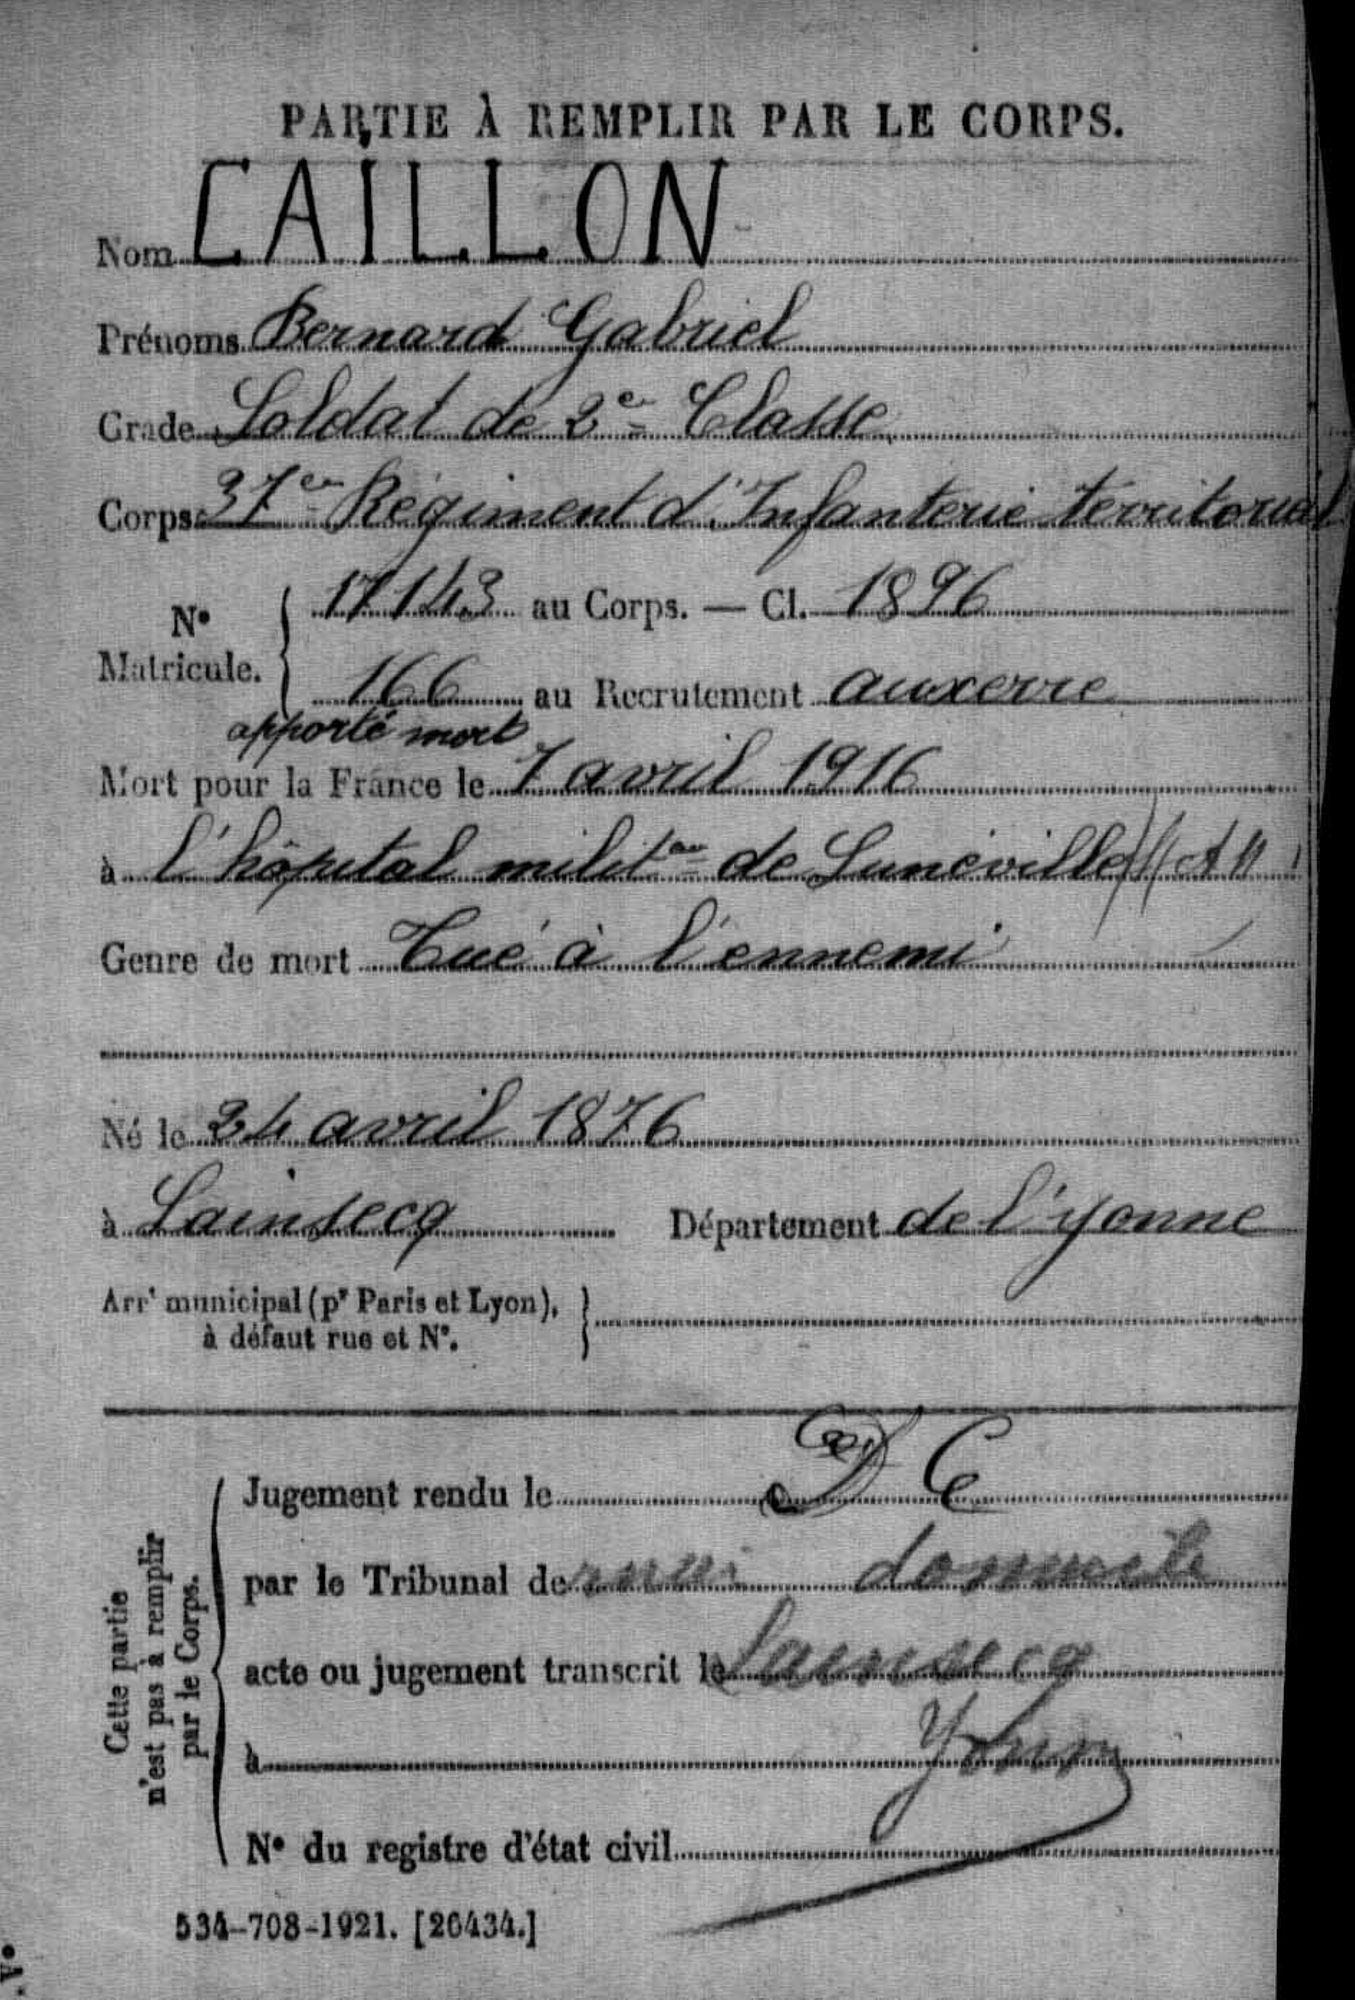 PARTIE À REMPLIR PAR LE CORPS.
Nom CAILLON
Prénoms Bernard Gabriel
Grade Soldat de 2e Classe
Corps 37e Régiment d'Infanterie territorial
No Matricule. { 17143 au Corps. — Cl. 1896
166 au Recrutement auxerre
apporté mort
Mort pour la France le 7 avril 1916
à l'hôpital milit de Lunéville
Genre de mort Tué à l'ennemi
Né le 24 avril 1876
à Lainsecq Département de l'yonne
Arrt municipal (pr Paris et Lyon), }
à défaut rue et No.
Cette partie
n'est pas à remplir
par le Corps.
Jugement rendu le D C
par le Tribunal de
acte ou jugement transcrit le Lainsecq
à Yonne
No du registre d'état civil
534-708-1921. [26434.]